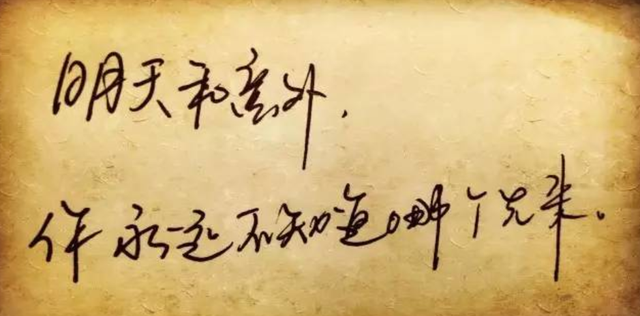 明天和意外,
你永远不知道哪个先来。